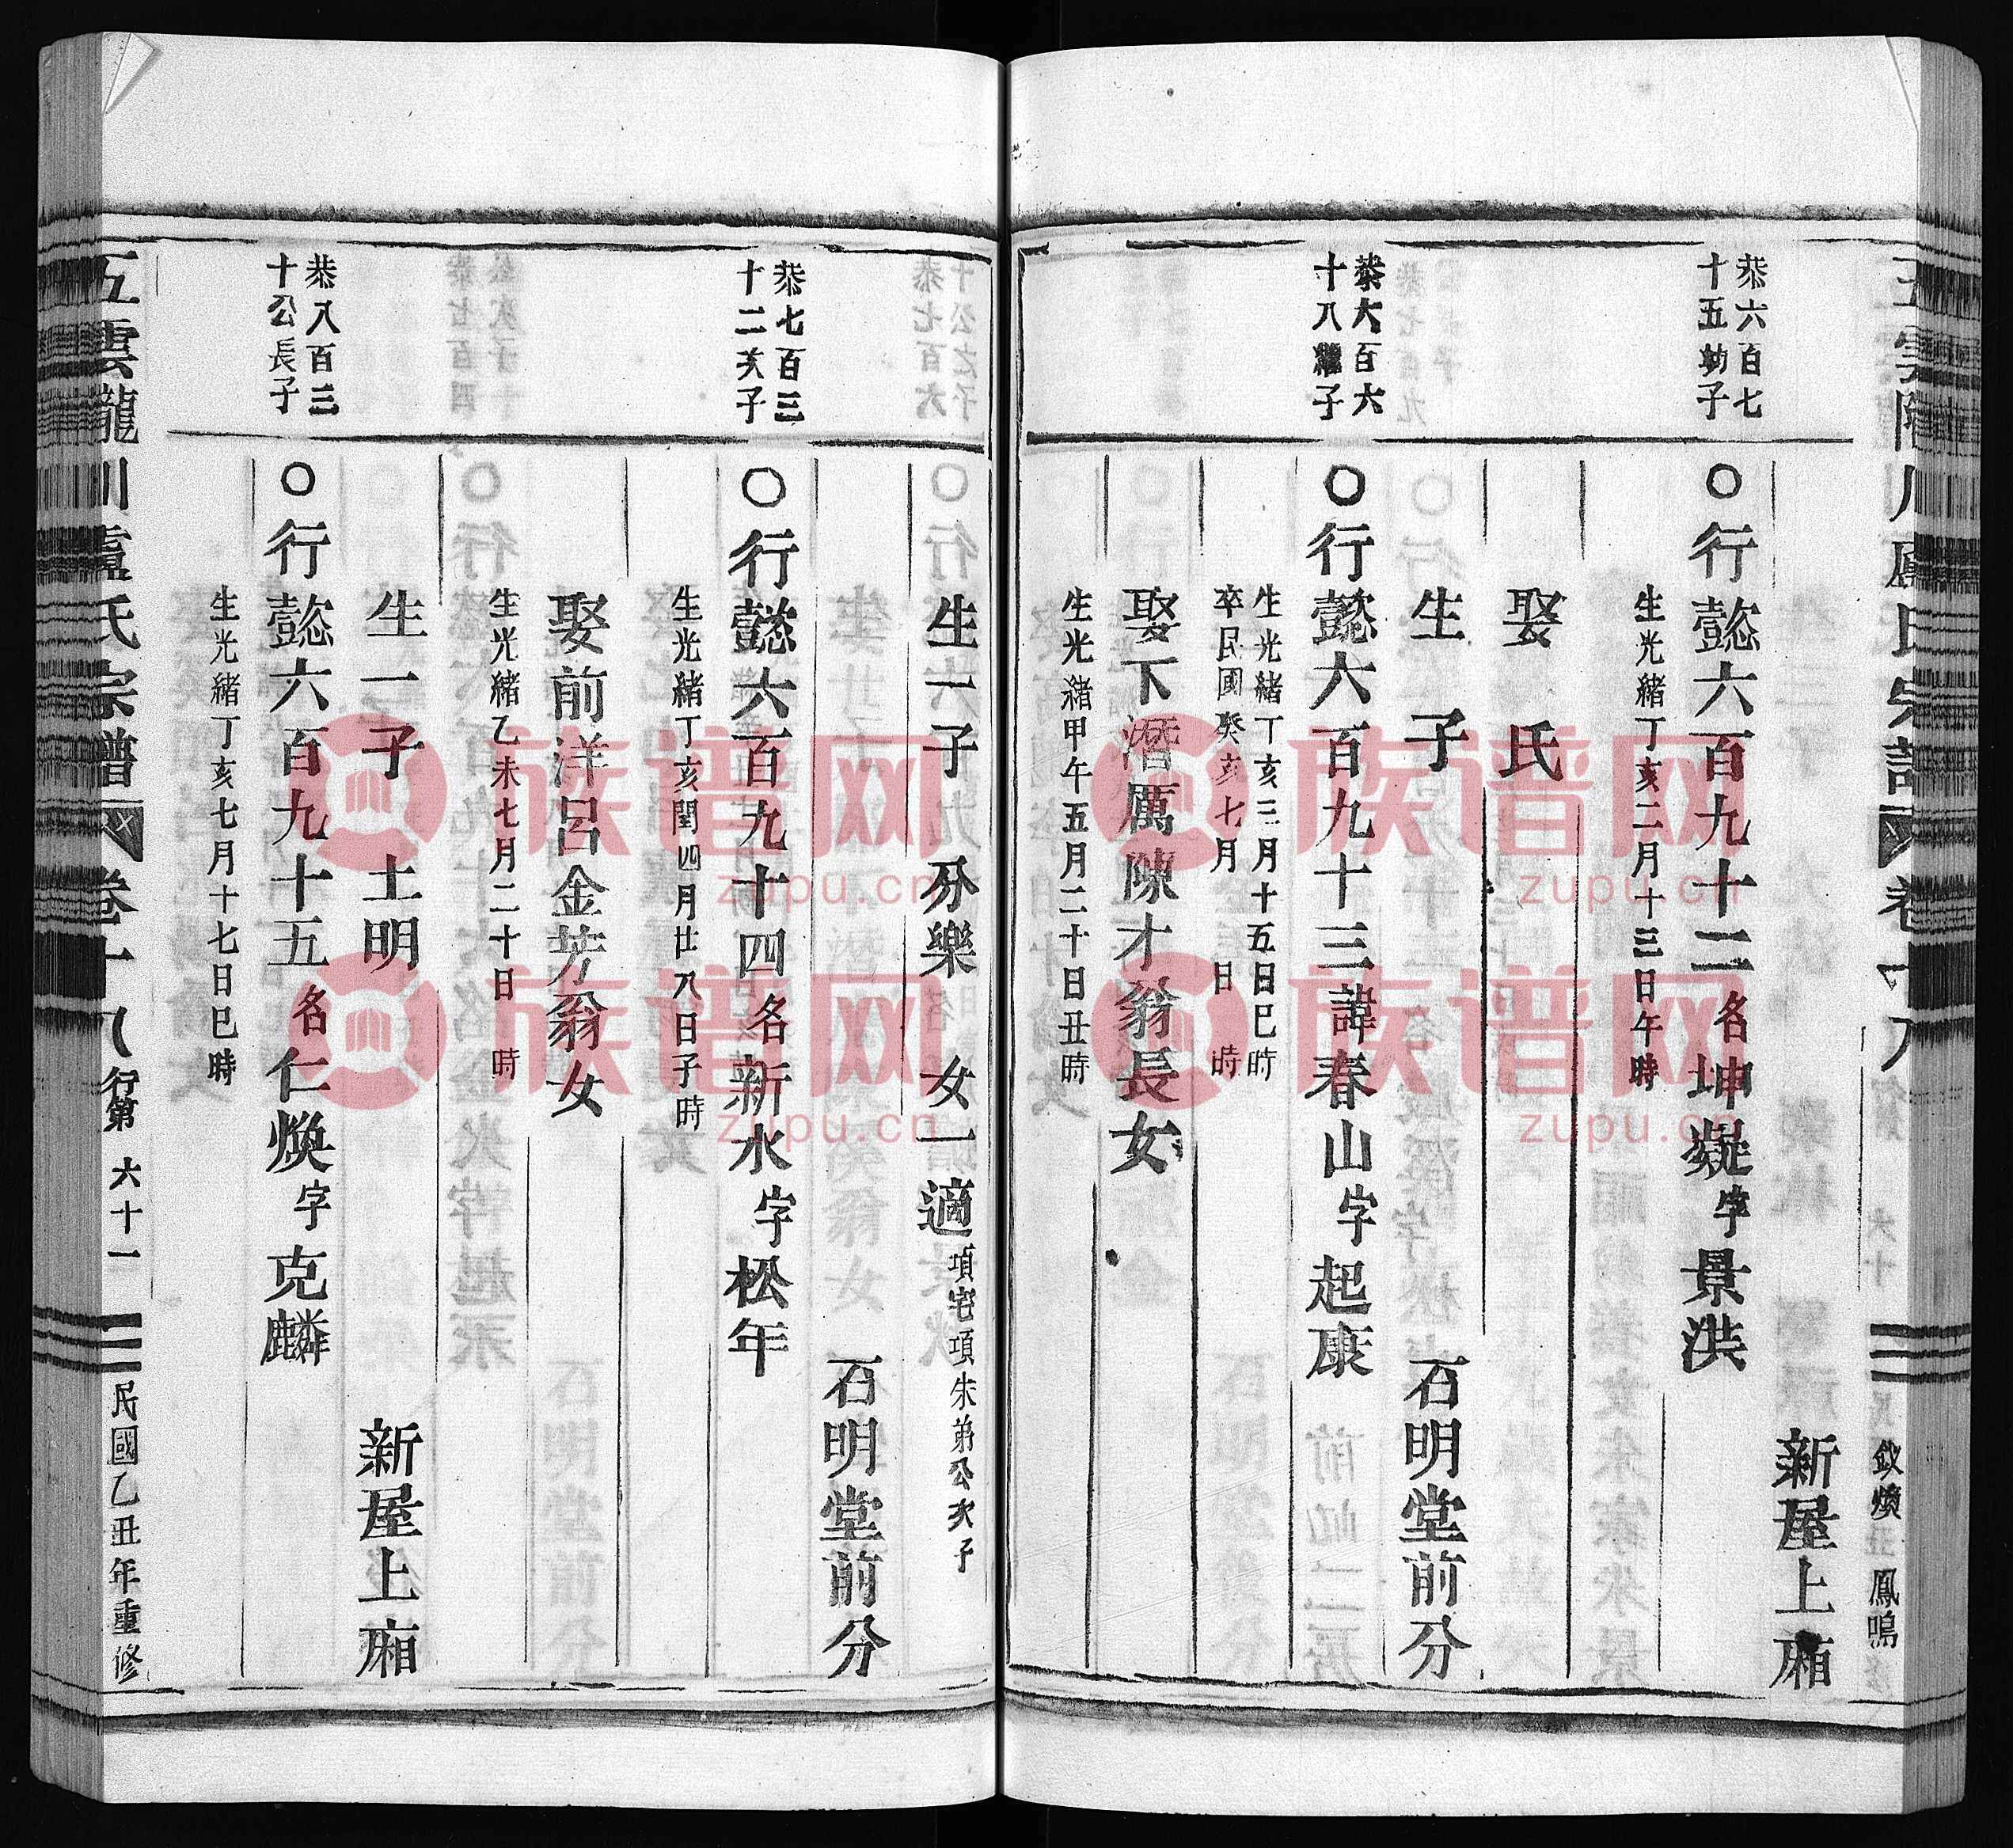 新屋上廂
恭六百七
十五勃子
○行懿六百九十二名坤凝字景洪
生光緒丁亥二月十三日午時
娶　氏
生　子
石明堂前分
恭六百六
十八子
○行懿六百九十三諱春山字起康
生光緒丁亥三月十五日巳時
卒民國癸亥七月　日　時
娶下潛厲陳才翁長女
生光緒甲午五月二十日丑時
生一子　樂　女一適項宅項朱弟公次子
石明堂前分
恭七百三
十二次子
○行懿六百九十四名新水字松年
生光緒丁亥閏四月廿八日子時
娶前洋呂金芳翁女
生光緒乙未七月二十日　時
生一子　土明
新屋上廂
恭八百三
十公長子
○行懿六百九十五名仁煥字克麟
生光緒丁亥七月十七日巳時
五雲龍川盧氏宗譜　卷十八　行第　六十一　民國乙丑年重修
族谱网
zupu.cn
族谱网
zupu.cn
族谱网
zupu.cn
族谱网
zupu.cn